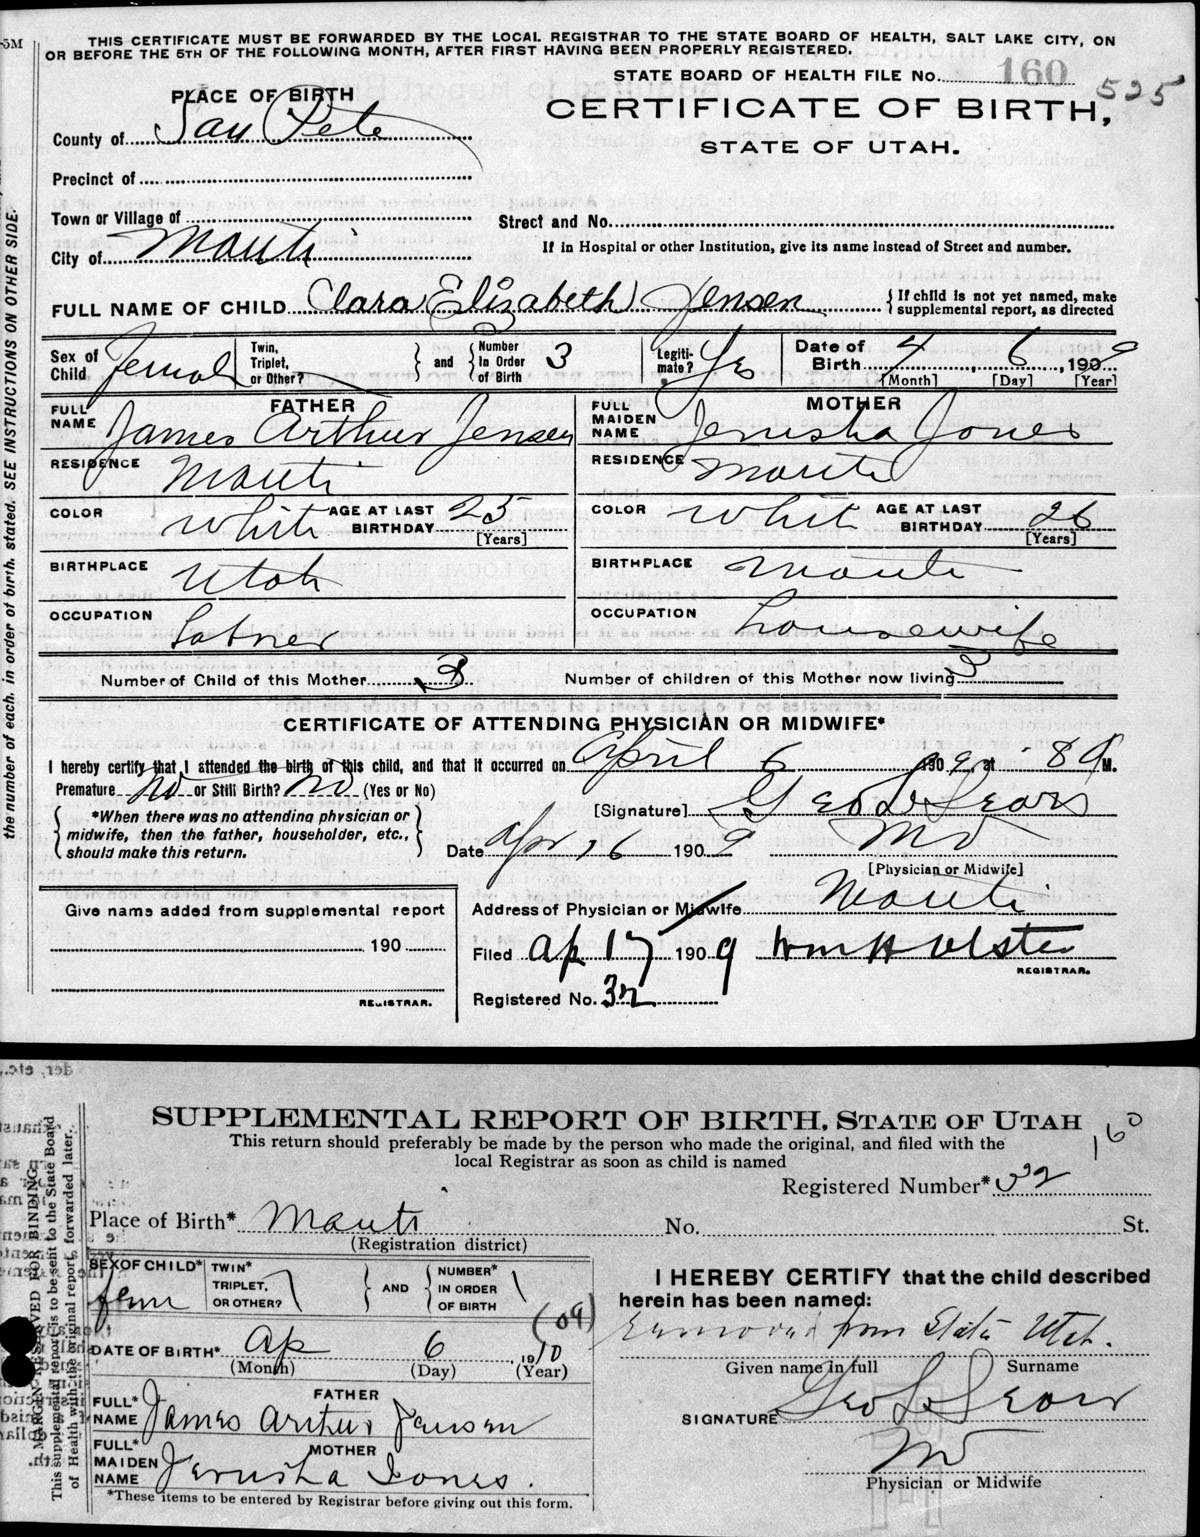 -5M
THIS CERTIFICATE MUST BE FORWARDED BY THE LOCAL REGISTRAR TO THE STATE BOARD OF HEALTH, SALT LAKE CITY, ON
OR BEFORE THE 5TH OF THE FOLLOWING MONTH, AFTER FIRST HAVING BEEN PROPERLY REGISTERED.
STATE BOARD OF HEALTH FILE No. 160 525
PLACE OF BIRTH
CERTIFICATE OF BIRTH,
County of San Pete
STATE OF UTAH.
Precinct of
Town or Village of
Street and No.
City of Manti
If in Hospital or other Institution, give its name instead of Street and number.
FULL NAME OF CHILD Clara Elizabeth Jensen { If child is not yet named, make supplemental report, as directed
Sex of Child Femal Twin, Triplet, or Other? } and { Number in Order of Birth 3 Legiti-mate? Yes Date of Birth 4, 6, 1909
[Month] [Day] [Year]
FATHER MOTHER
FULL NAME James Arthur Jensen FULL MAIDEN NAME Jerusha Jones
RESIDENCE Manti RESIDENCE Manti
COLOR White AGE AT LAST BIRTHDAY 25 [Years] COLOR White AGE AT LAST BIRTHDAY 26 [Years]
BIRTHPLACE Utah BIRTHPLACE Manti
OCCUPATION OCCUPATION housewife
Number of Child of this Mother 3 Number of children of this Mother now living 3
CERTIFICATE OF ATTENDING PHYSICIAN OR MIDWIFE*
I hereby certify that I attended the birth of this child, and that it occurred on April 6 1909, at 8 A M.
Premature No or Still Birth? No (Yes or No)
[Signature] Geo L Sears
*When there was no attending physician or
midwife, then the father, householder, etc.,
should make this return.
Date Apr 16 1909 MD
[Physician or Midwife]
Give name added from supplemental report
Address of Physician or Midwife Manti
190
Filed Ap 17 1909 Wm H Olsten
REGISTRAR.
REGISTRAR.
Registered No. 32
the number of each, in order of birth, stated. SEE INSTRUCTIONS ON OTHER SIDE.
SUPPLEMENTAL REPORT OF BIRTH, STATE OF UTAH
160
This return should preferably be made by the person who made the original, and filed with the
local Registrar as soon as child is named
Registered Number* 32
Place of Birth* Manti No. St.
(Registration district)
SEX OF CHILD* fem TWIN* TRIPLET, OR OTHER? } AND { NUMBER* IN ORDER OF BIRTH
I HEREBY CERTIFY that the child described
herein has been named:
(09)
DATE OF BIRTH* Ap 6 1910
(Month) (Day) (Year)
from State Utah.
Given name in full Surname
FATHER
FULL* NAME James Arthur Jensen
SIGNATURE Geo L Sears
MOTHER
FULL* MAIDEN NAME Jerusha Jones.
MD
Physician or Midwife
*These items to be entered by Registrar before giving out this form.
MARGIN RESERVED FOR BINDING
This supplemental report is to be sent to the State Board
of Health with the original report, forwarded later.